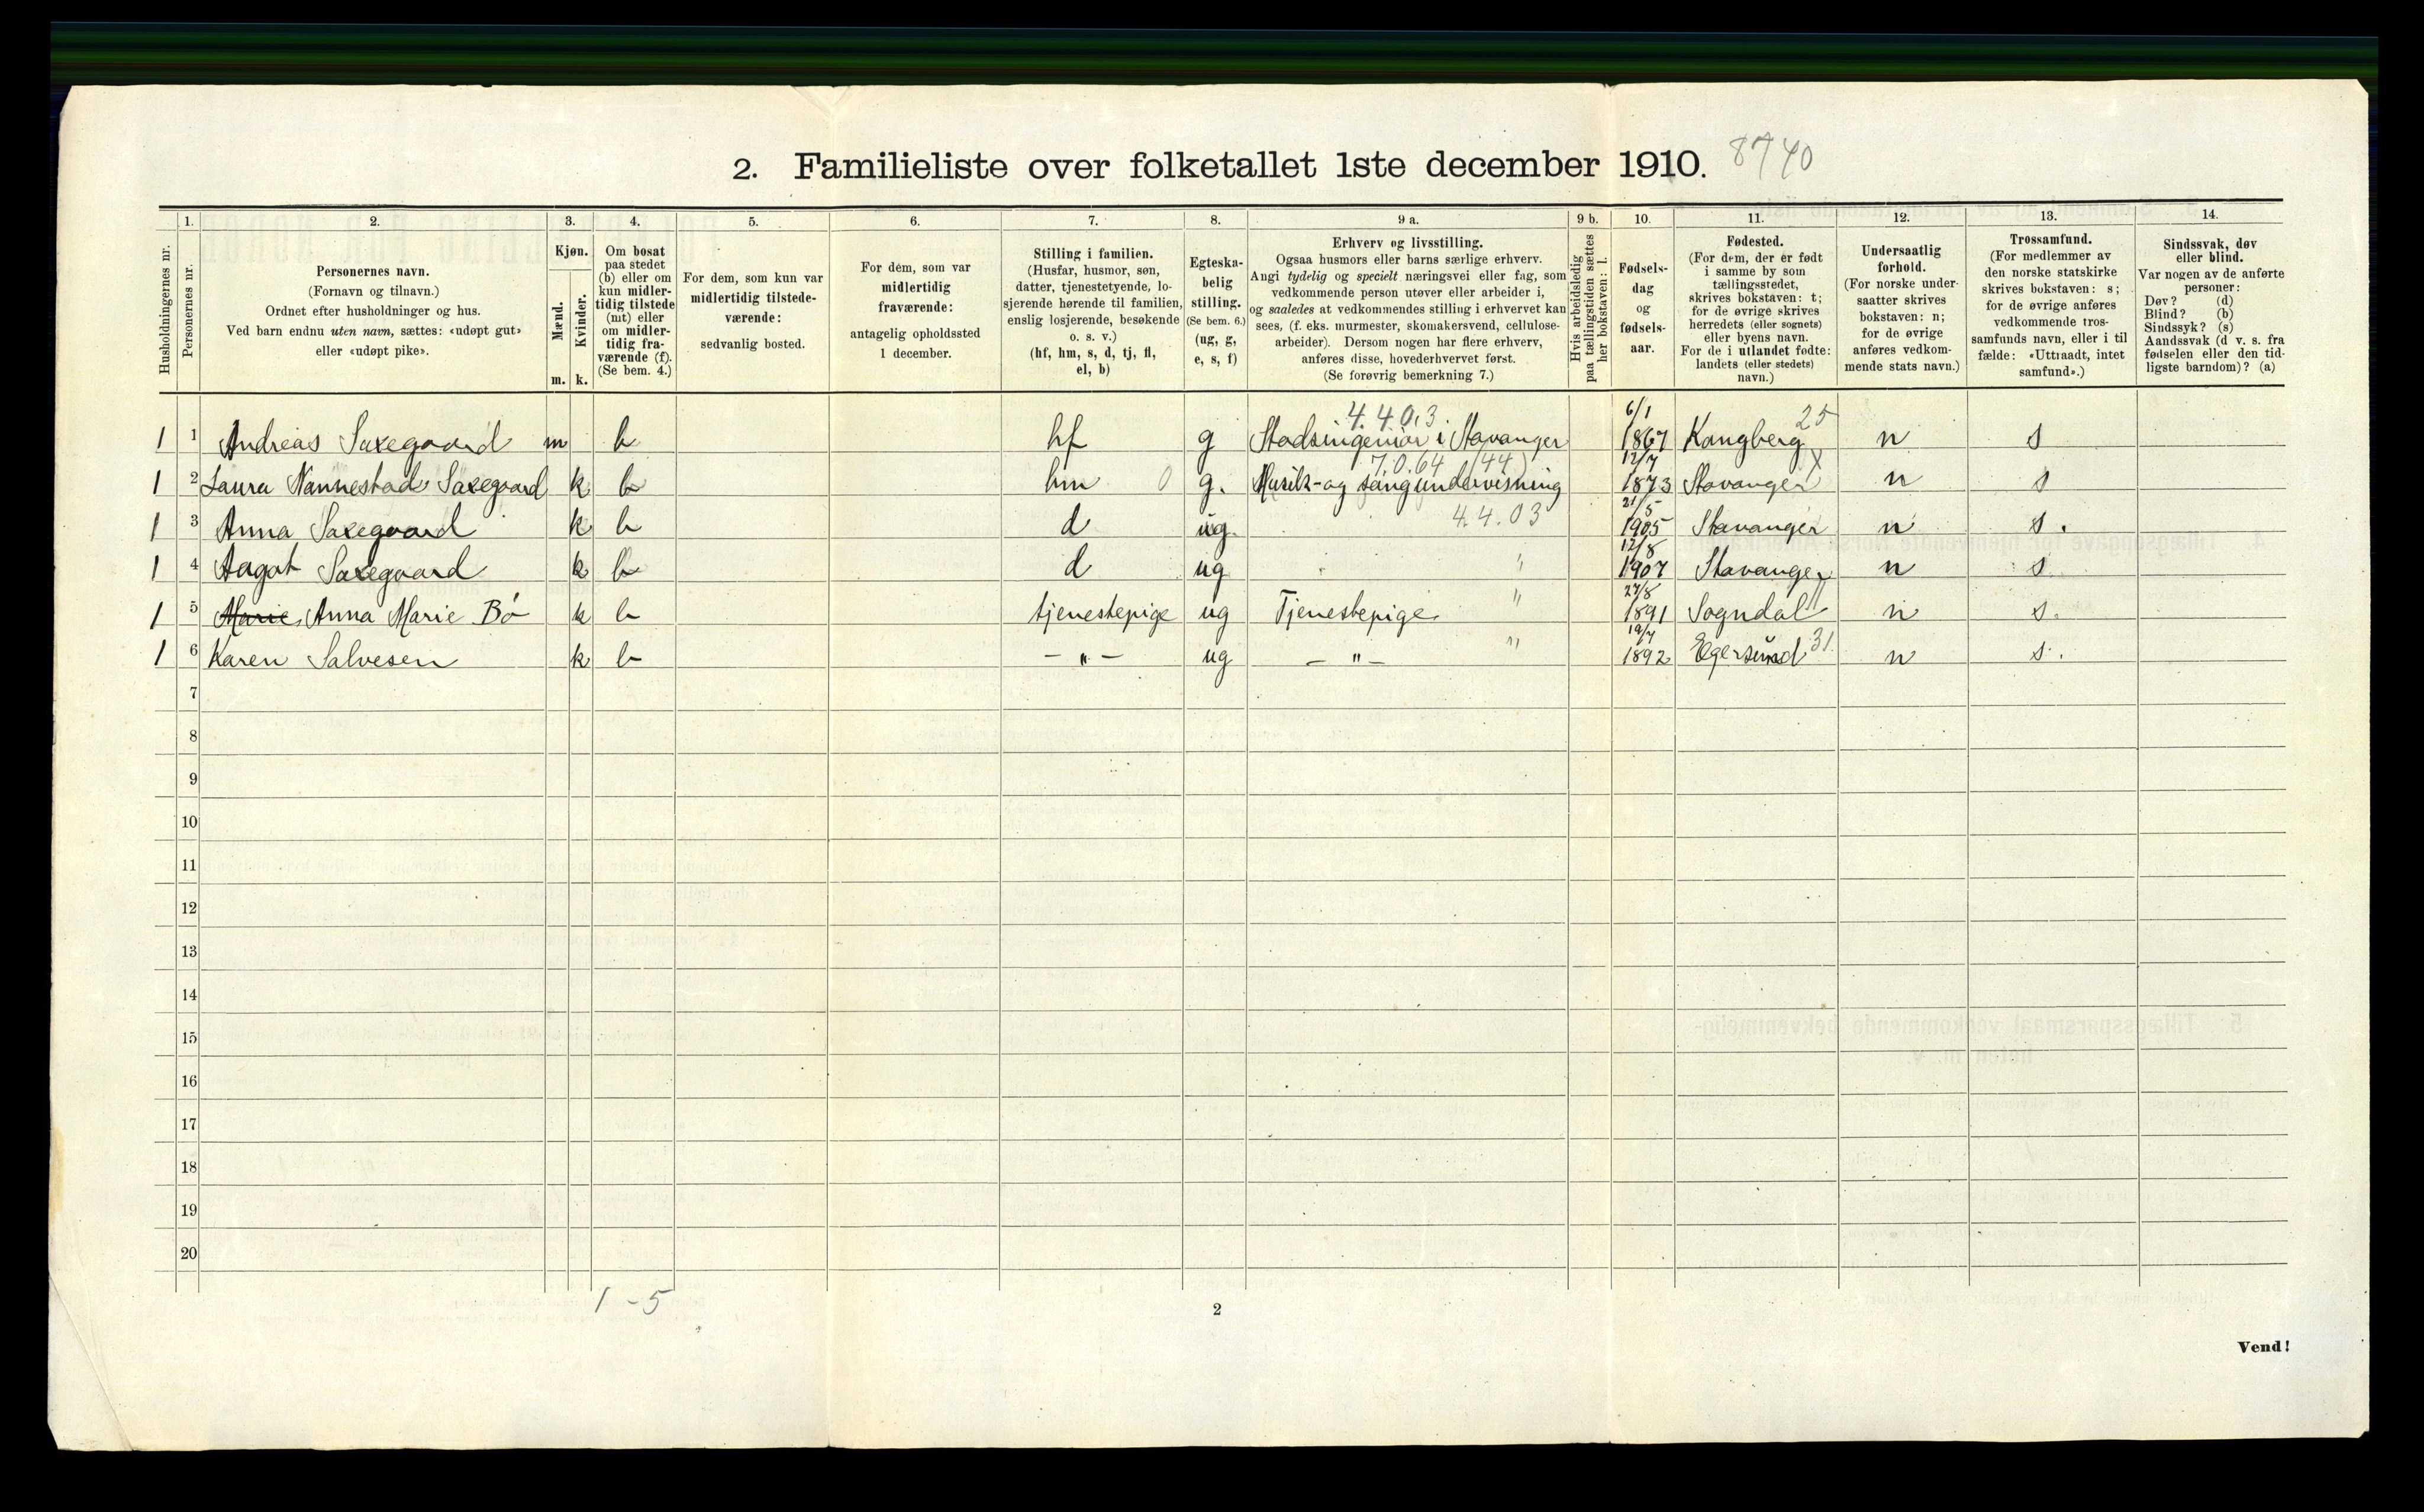 2. Familieliste over folketallet 1ste december 1910. 8740
1. 2. 3. 4. 5. 6. 7. 8. 9 a. 9 b. 10. 11. 12. 13. 14.
Husholdningernes nr.
Personernes nr.
Personernes navn.
(Fornavn og tilnavn.)
Ordnet efter husholdninger og hus.
Ved barn endnu uten navn, sættes: «udøpt gut»
eller «udøpt pike».
Kjøn.
Mænd.
Kvinder.
m. k.
Om bosat
paa stedet
(b) eller om
kun midler-
tidig tilstede
(mt) eller
om midler-
tidig fra-
værende (f).
(Se bem. 4.)
For dem, som kun var
midlertidig tilstede-
værende:
sedvanlig bosted.
For dem, som var
midlertidig
fraværende:
antagelig opholdssted
1 december.
Stilling i familien.
(Husfar, husmor, søn,
datter, tjenestetyende, lo-
sjerende hørende til familien,
enslig losjerende, besøkende
o. s. v.)
(hf, hm, s, d, tj, fl,
el, b)
Egteska-
belig
stilling.
(Se bem. 6.)
(ug, g,
e, s, f)
Erhverv og livsstilling.
Ogsaa husmors eller barns særlige erhverv.
Angi tydelig og specielt næringsvei eller fag, som
vedkommende person utøver eller arbeider i,
og saaledes at vedkommendes stilling i erhvervet kan
sees, (f. eks. murmester, skomakersvend, cellulose-
arbeider). Dersom nogen har flere erhverv,
anføres disse, hovederhvervet først.
(Se forøvrig bemerkning 7.)
Hvis arbeidsledig
paa tællingstiden sættes
her bokstaven: l.
Fødsels-
dag
og
fødsels-
aar.
Fødested.
(For dem, der er født
i samme by som
tællingsstedet,
skrives bokstaven: t;
for de øvrige skrives
herredets (eller sognets)
eller byens navn.
For de i utlandet fødte:
landets (eller stedets)
navn.)
Undersaatlig
forhold.
(For norske under-
saatter skrives
bokstaven: n;
for de øvrige
anføres vedkom-
mende stats navn.)
Trossamfund.
(For medlemmer av
den norske statskirke
skrives bokstaven: s;
for de øvrige anføres
vedkommende tros-
samfunds navn, eller i til
fælde: «Uttraadt, intet
samfund».)
Sindssvak, døv
eller blind.
Var nogen av de anførte
personer:
Døv? (d)
Blind? (b)
Sindssyk? (s)
Aandssvak (d. v. s. fra
fødselen eller den tid-
ligste barndom)? (a)
4.4.03 6/1 25
1 1 Andreas Saxegaard m b hf g Stadsingeniør i Stavanger 1867 Kangberg n s
7.0.64 (44) 12/7
1 2 Laura Nannestad Saxegaard k b hm 0 g. Musik- og sangundervisning 1873 Stavanger n s
21/5
1 3 Anna Saxegaard k b d ug. 4.4.03 1905 Stavanger n s.
12/8
1 4 Aagot Saxegaard k b d ug " 1907 Stavanger n s
27/8
1 5 Marie, Anna Marie Bø k b tjenestepige ug Tjenestepige " 1891 Sogndal n s.
19/7
1 6 Karen Salvesen k b - " - ug - " - " 1892 Egersund 31 n s.
7
8
9
10
11
12
13
14
15
16
17
18
19
20
1 - 5
2
Vend!